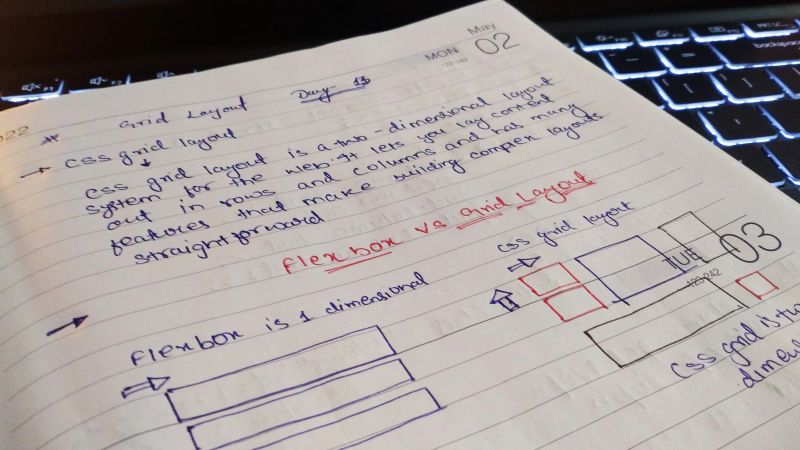 May
MON 02
2022
# Grid Layout Day 13
→ CSS grid layout
CSS grid layout is a two-dimensional layout
system for the web. It lets you lay content
out in rows and columns and has many
features that make building complex layouts
straightforward
Flexbox vs Grid Layout
→ Flexbox is 1 dimensional
css grid layout
TUE 03
123-242
CSS grid is two
dimen
backspace